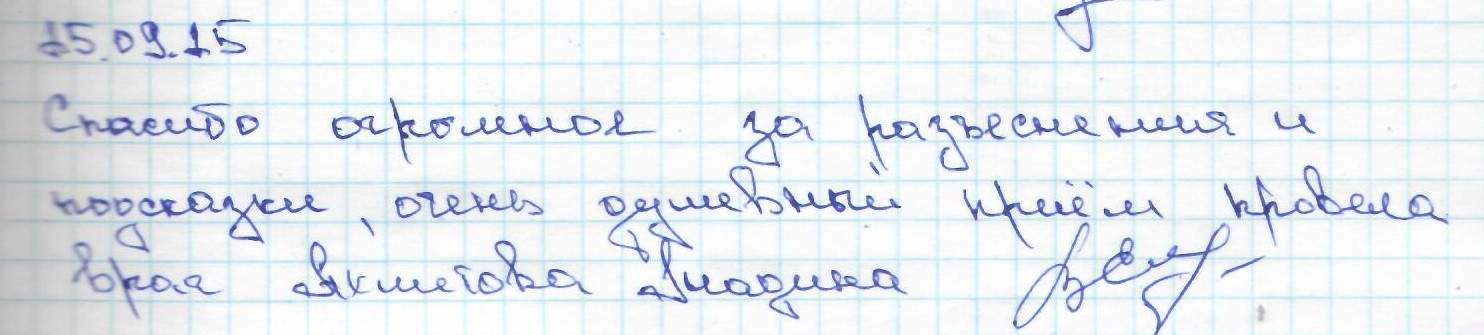 15.09.15
Спасибо огромное за разъеснения и
подсказки, очень душевный приём провела
врач Ахметова